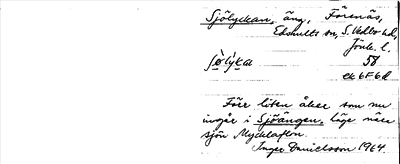 Sjölyckan, äng, Förenäs,
Edshults sn, S. Vedbo hd,
Jönk. l.
58
ek 6F6d
Förr liten åker som nu
ingår i Sjöängen, läge nära
sjön Mycklaflon.
Inger Danielsson 1964.